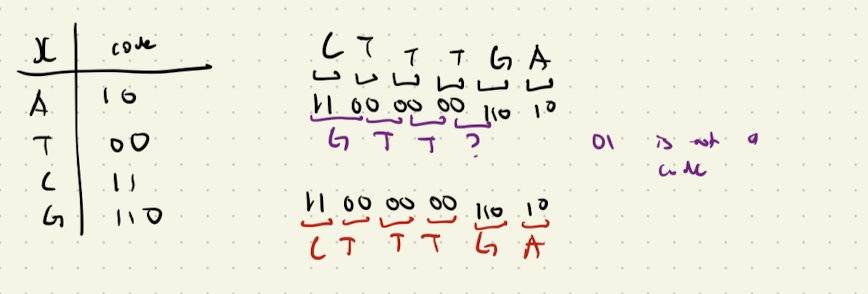 x code
A 10
T 00
C 11
G 110
C T T T G A
11 00 00 00 110 10
G T T ?
01 is not a code
11 00 00 00 110 10
C T T T G A